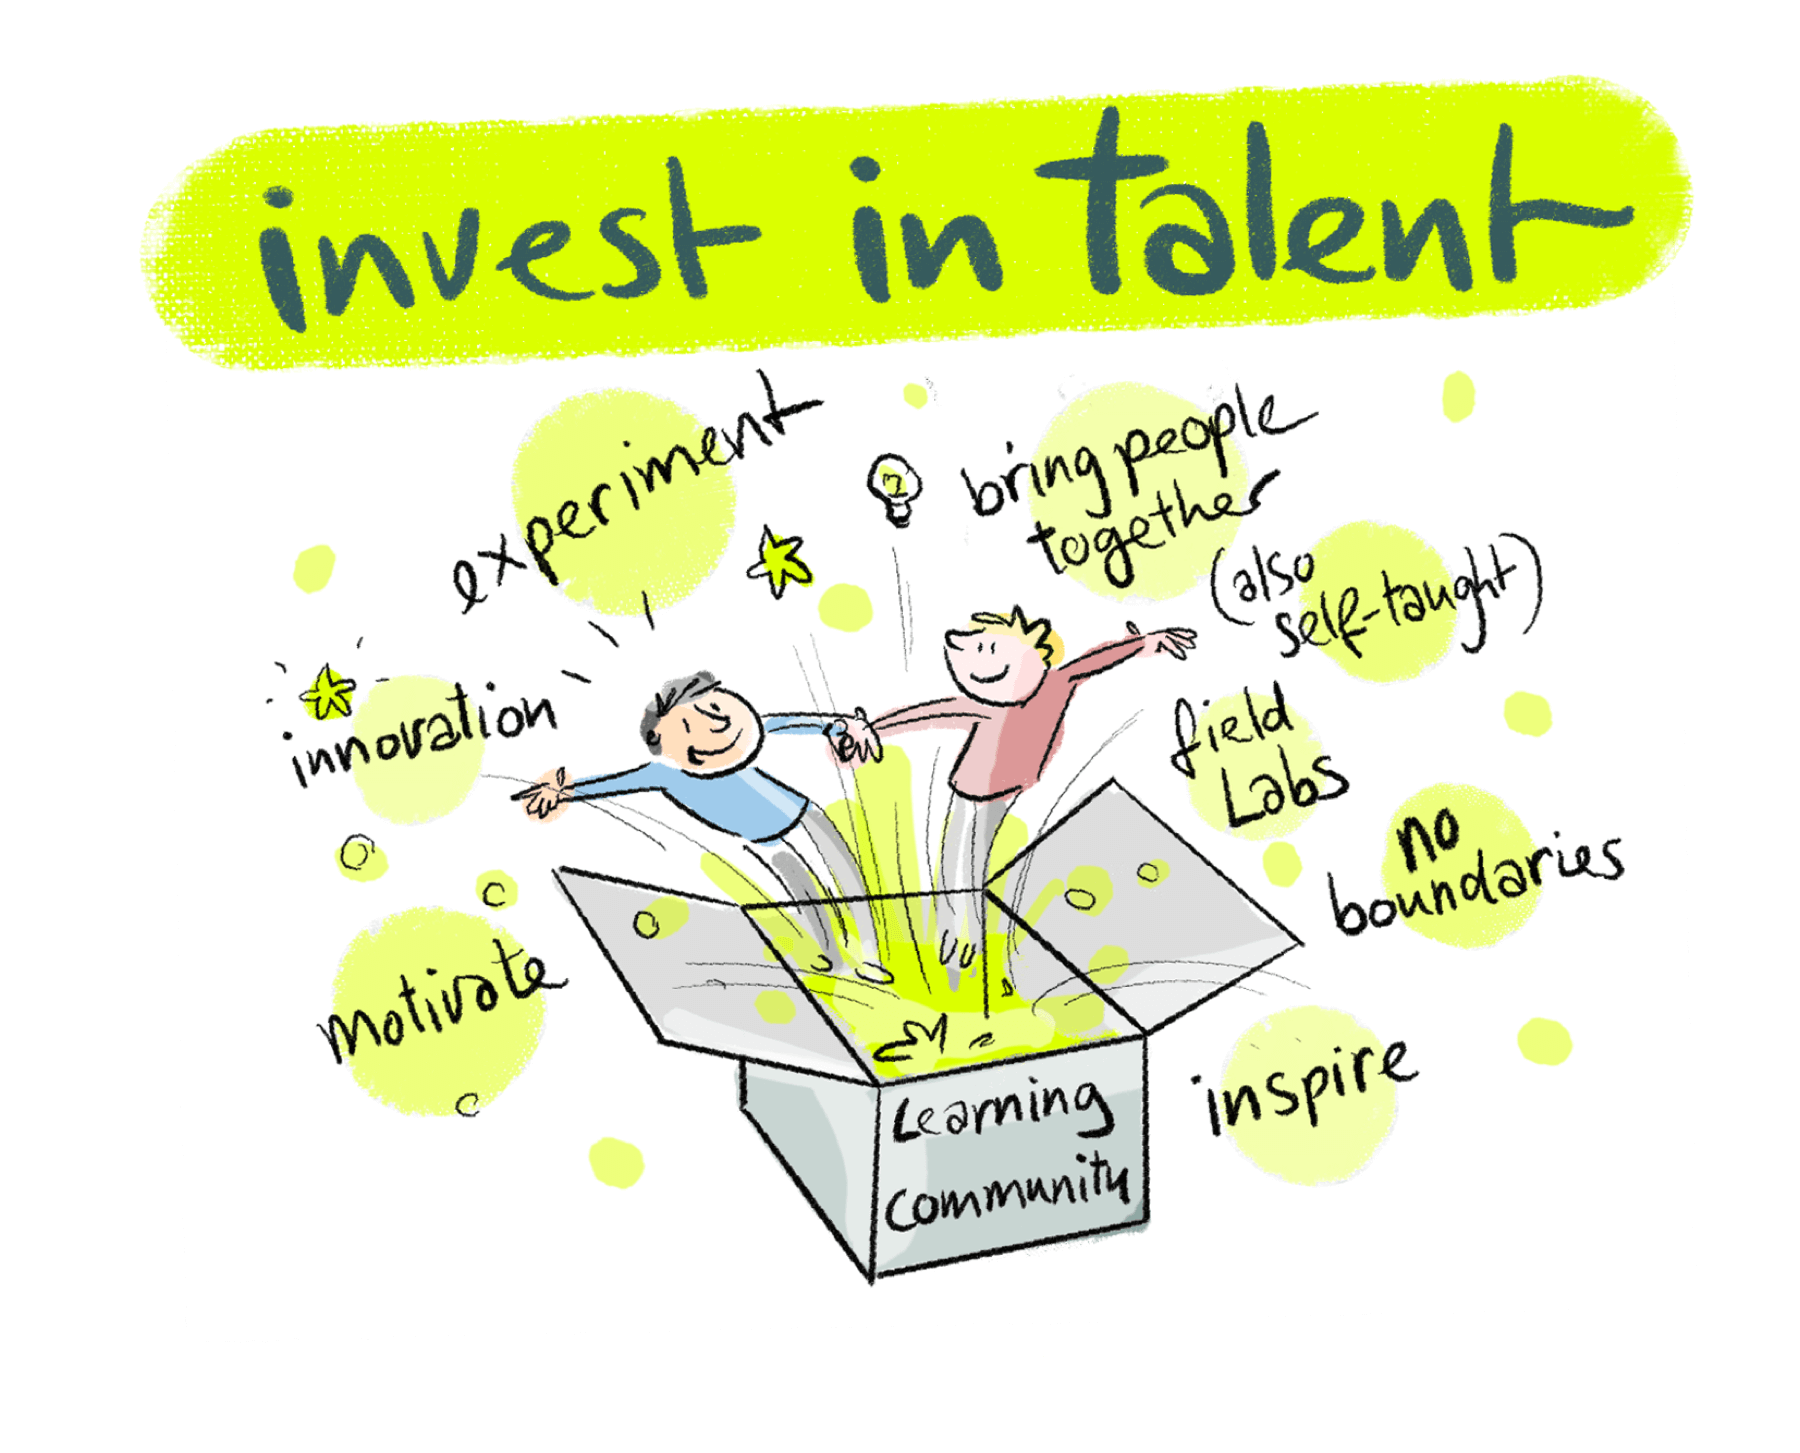 invest in talent
experiment
bring people
together
(also
self-taught)
innovation
field
Labs
no
boundaries
motivate
inspire
Learning
community